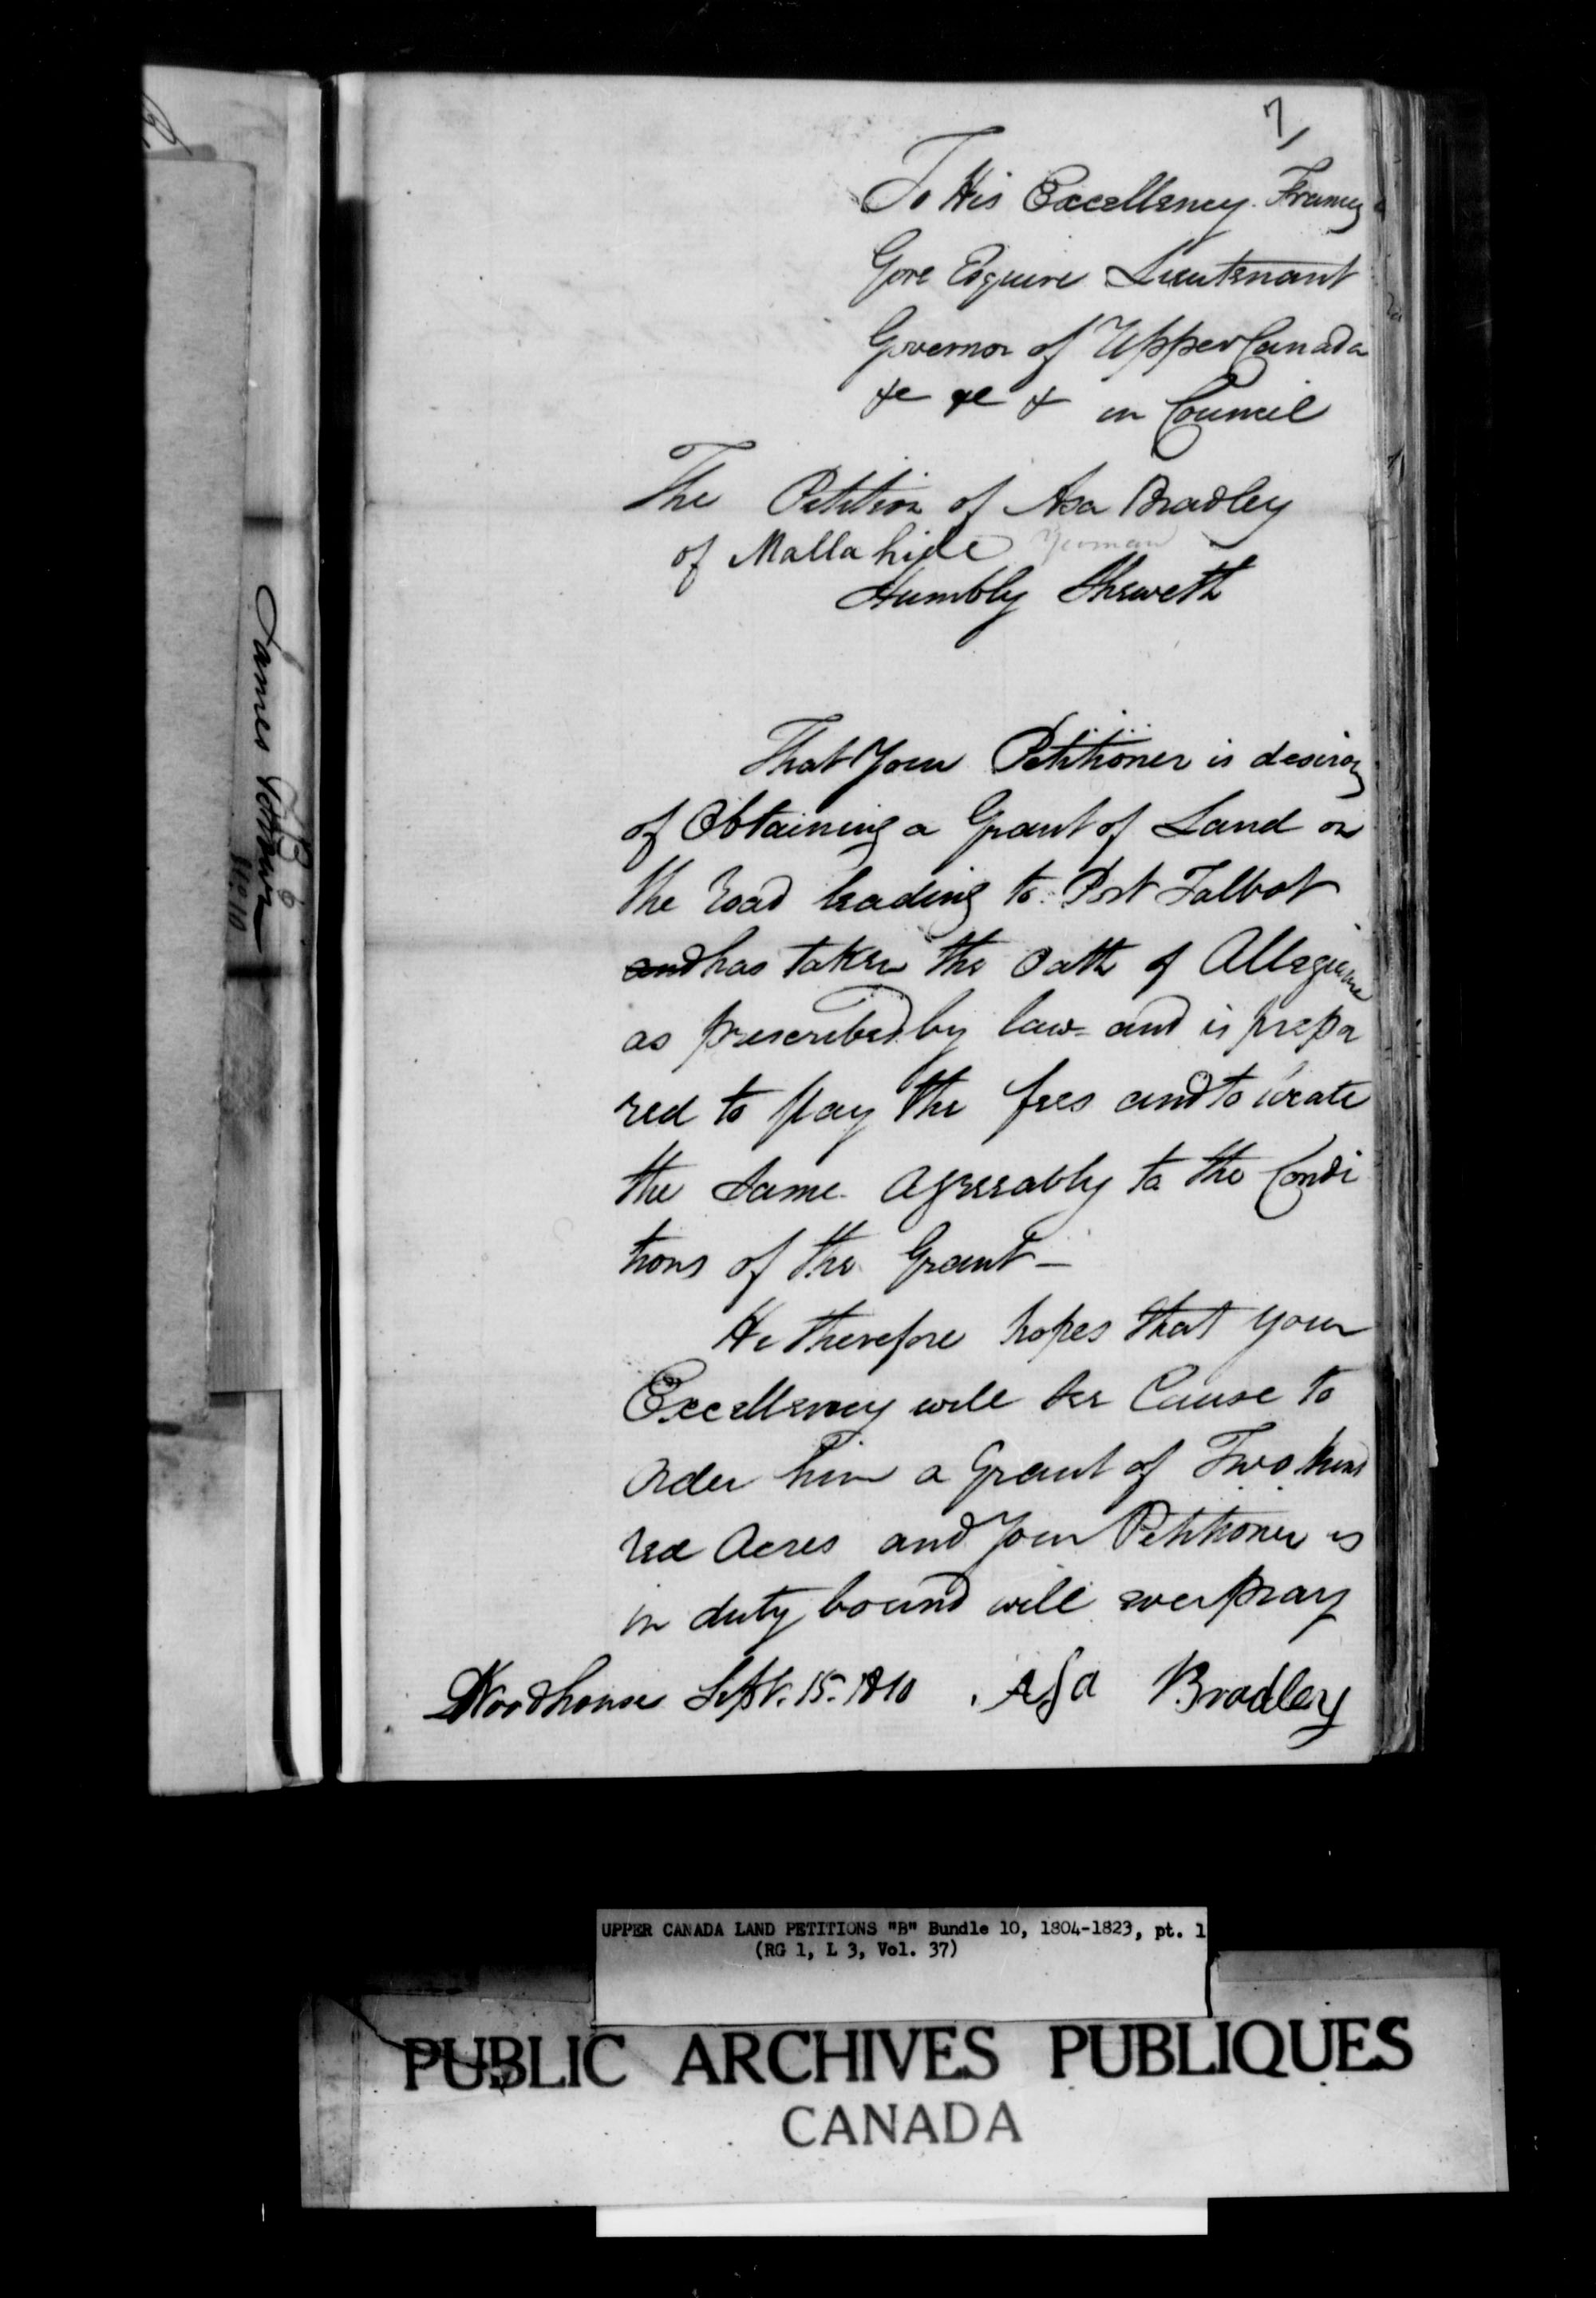 7
To His Excellency Francis
Gore Esquire Lieutenant
Governor of Upper Canada
&c &c & in Council
The Petition of Asa Bradley
of Mallahide Yeoman
Humbly Sheweth
That Your Petitioner is desirous
of Obtaining a Grant of Land on
the Road leading to Port Talbot
and has taken the Oath of Allegiance
as prescribed by law and is prepa
red to pay the fees and to locate
the Same agreeably to the Condi
tions of the Grant —
He therefore hopes that your
Excellency will see Cause to
order him a Grant of Two Hund
red Acres and Your Petitioner as
in duty bound will ever pray
Woodhouse Sept. 15. 1810 Asa Bradley
James
B 6
UPPER CANADA LAND PETITIONS "B" Bundle 10, 1804-1823, pt. 1
(RG 1, L 3, Vol. 37)
PUBLIC ARCHIVES PUBLIQUES
CANADA